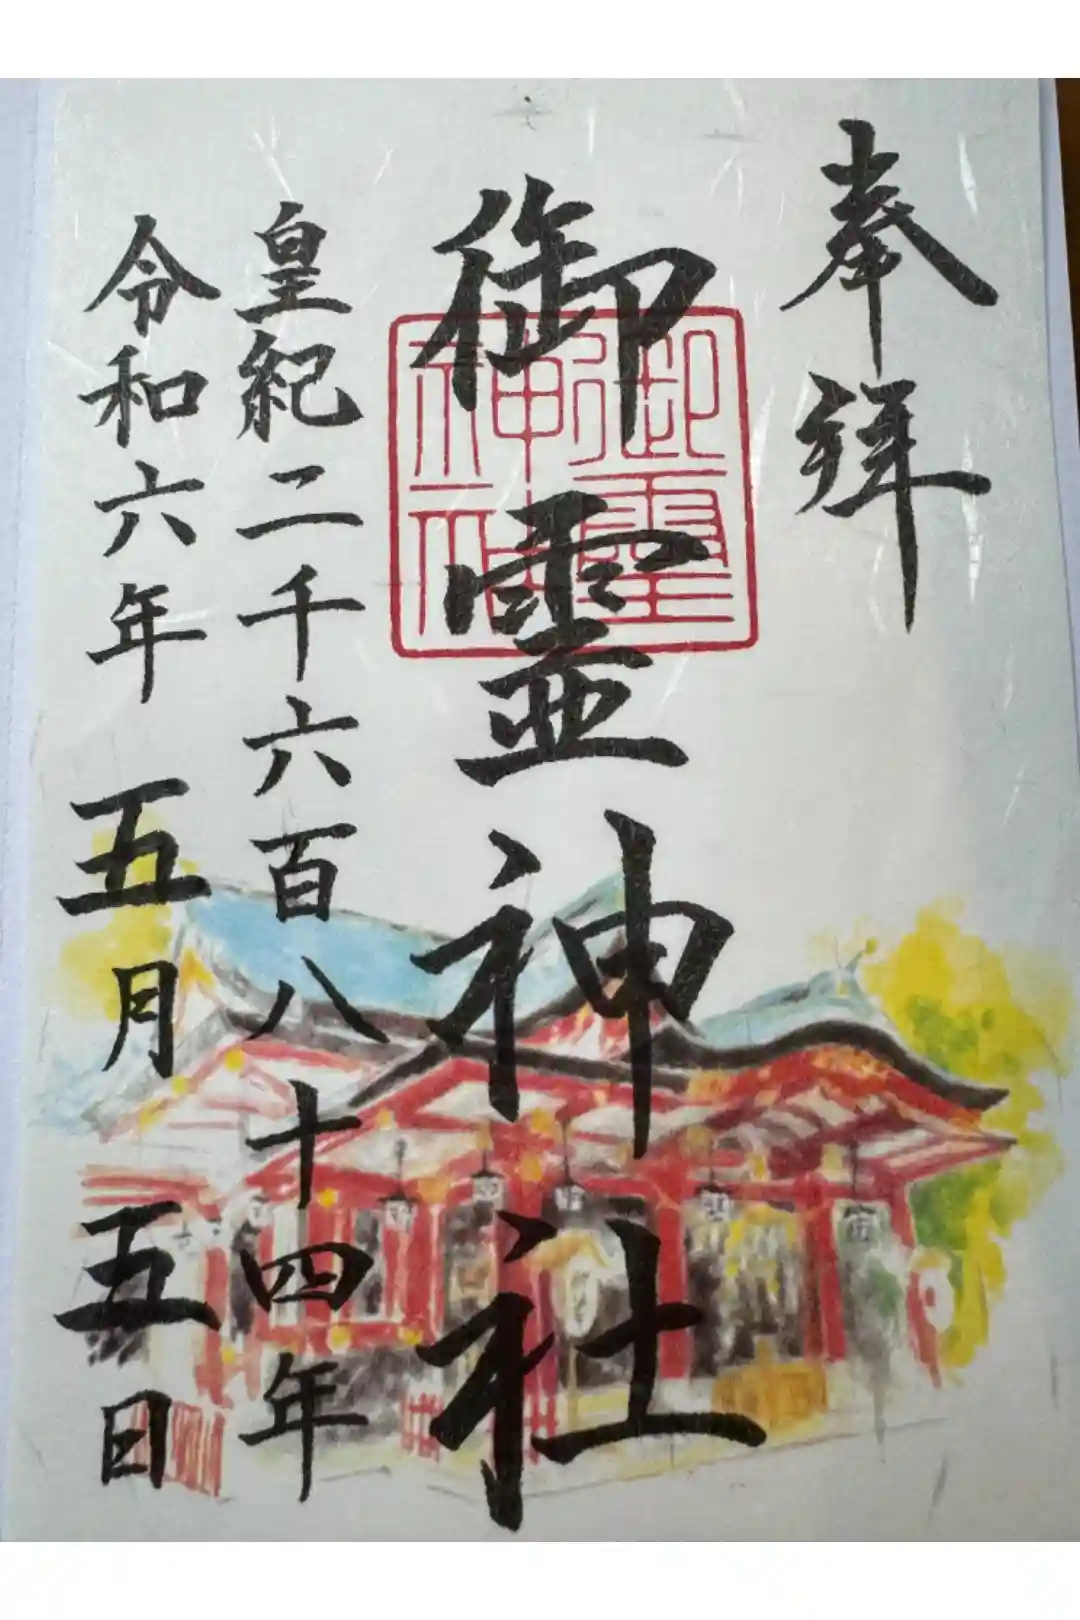 奉拜
御靈神社
御靈
神社
皇紀二千六百八十四年
令和六年五月五日